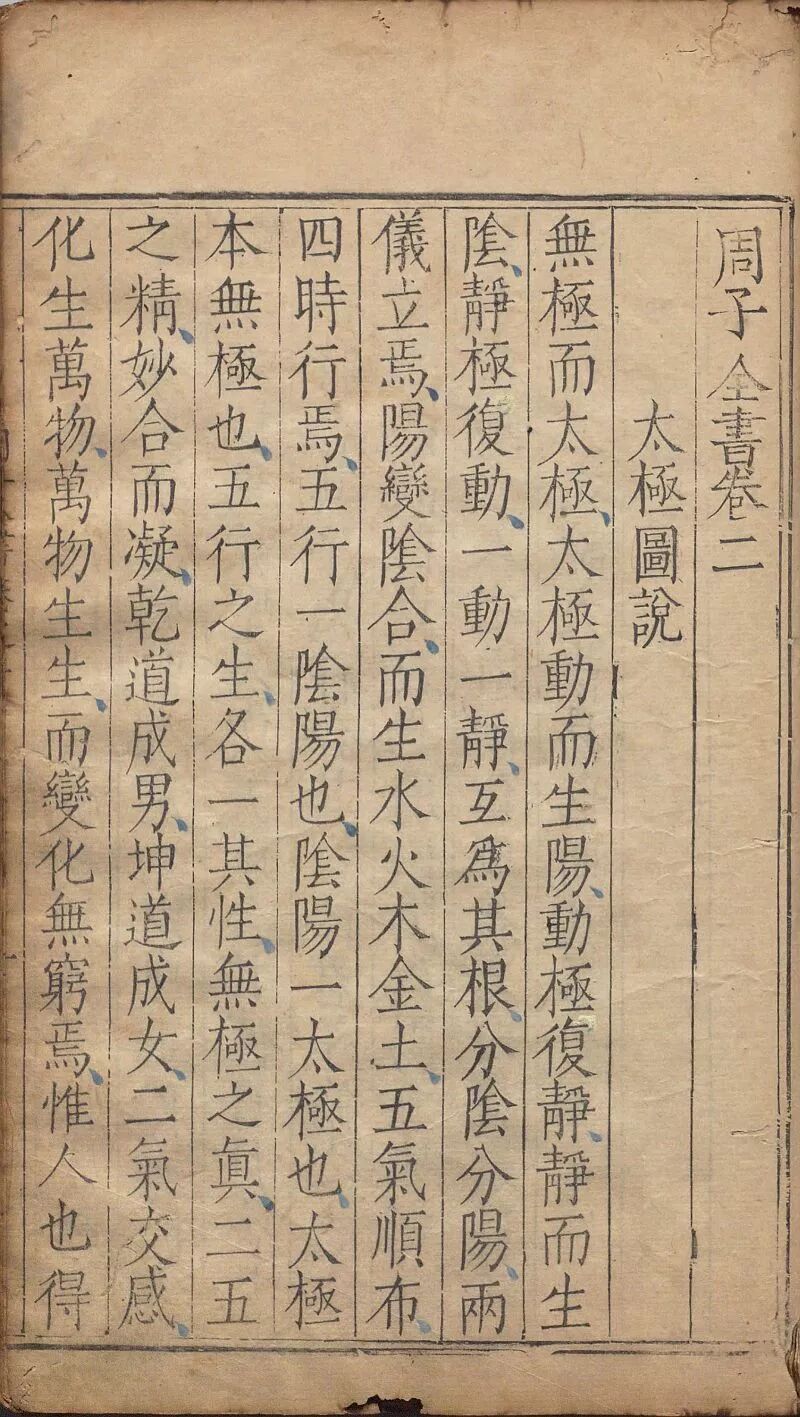 周子全書卷二
太極圖說
無極而太極、太極動而生陽、動極復靜、靜而生
陰、靜極復動、一動一靜、互爲其根、分陰分陽、兩
儀立焉、陽變陰合、而生水火木金土、五氣順布、
四時行焉、五行一陰陽也、陰陽一太極也、太極
本無極也、五行之生、各一其性、無極之眞、二五
之精、妙合而凝、乾道成男、坤道成女、二氣交感、
化生萬物、萬物生生、而變化無窮焉、惟人也得